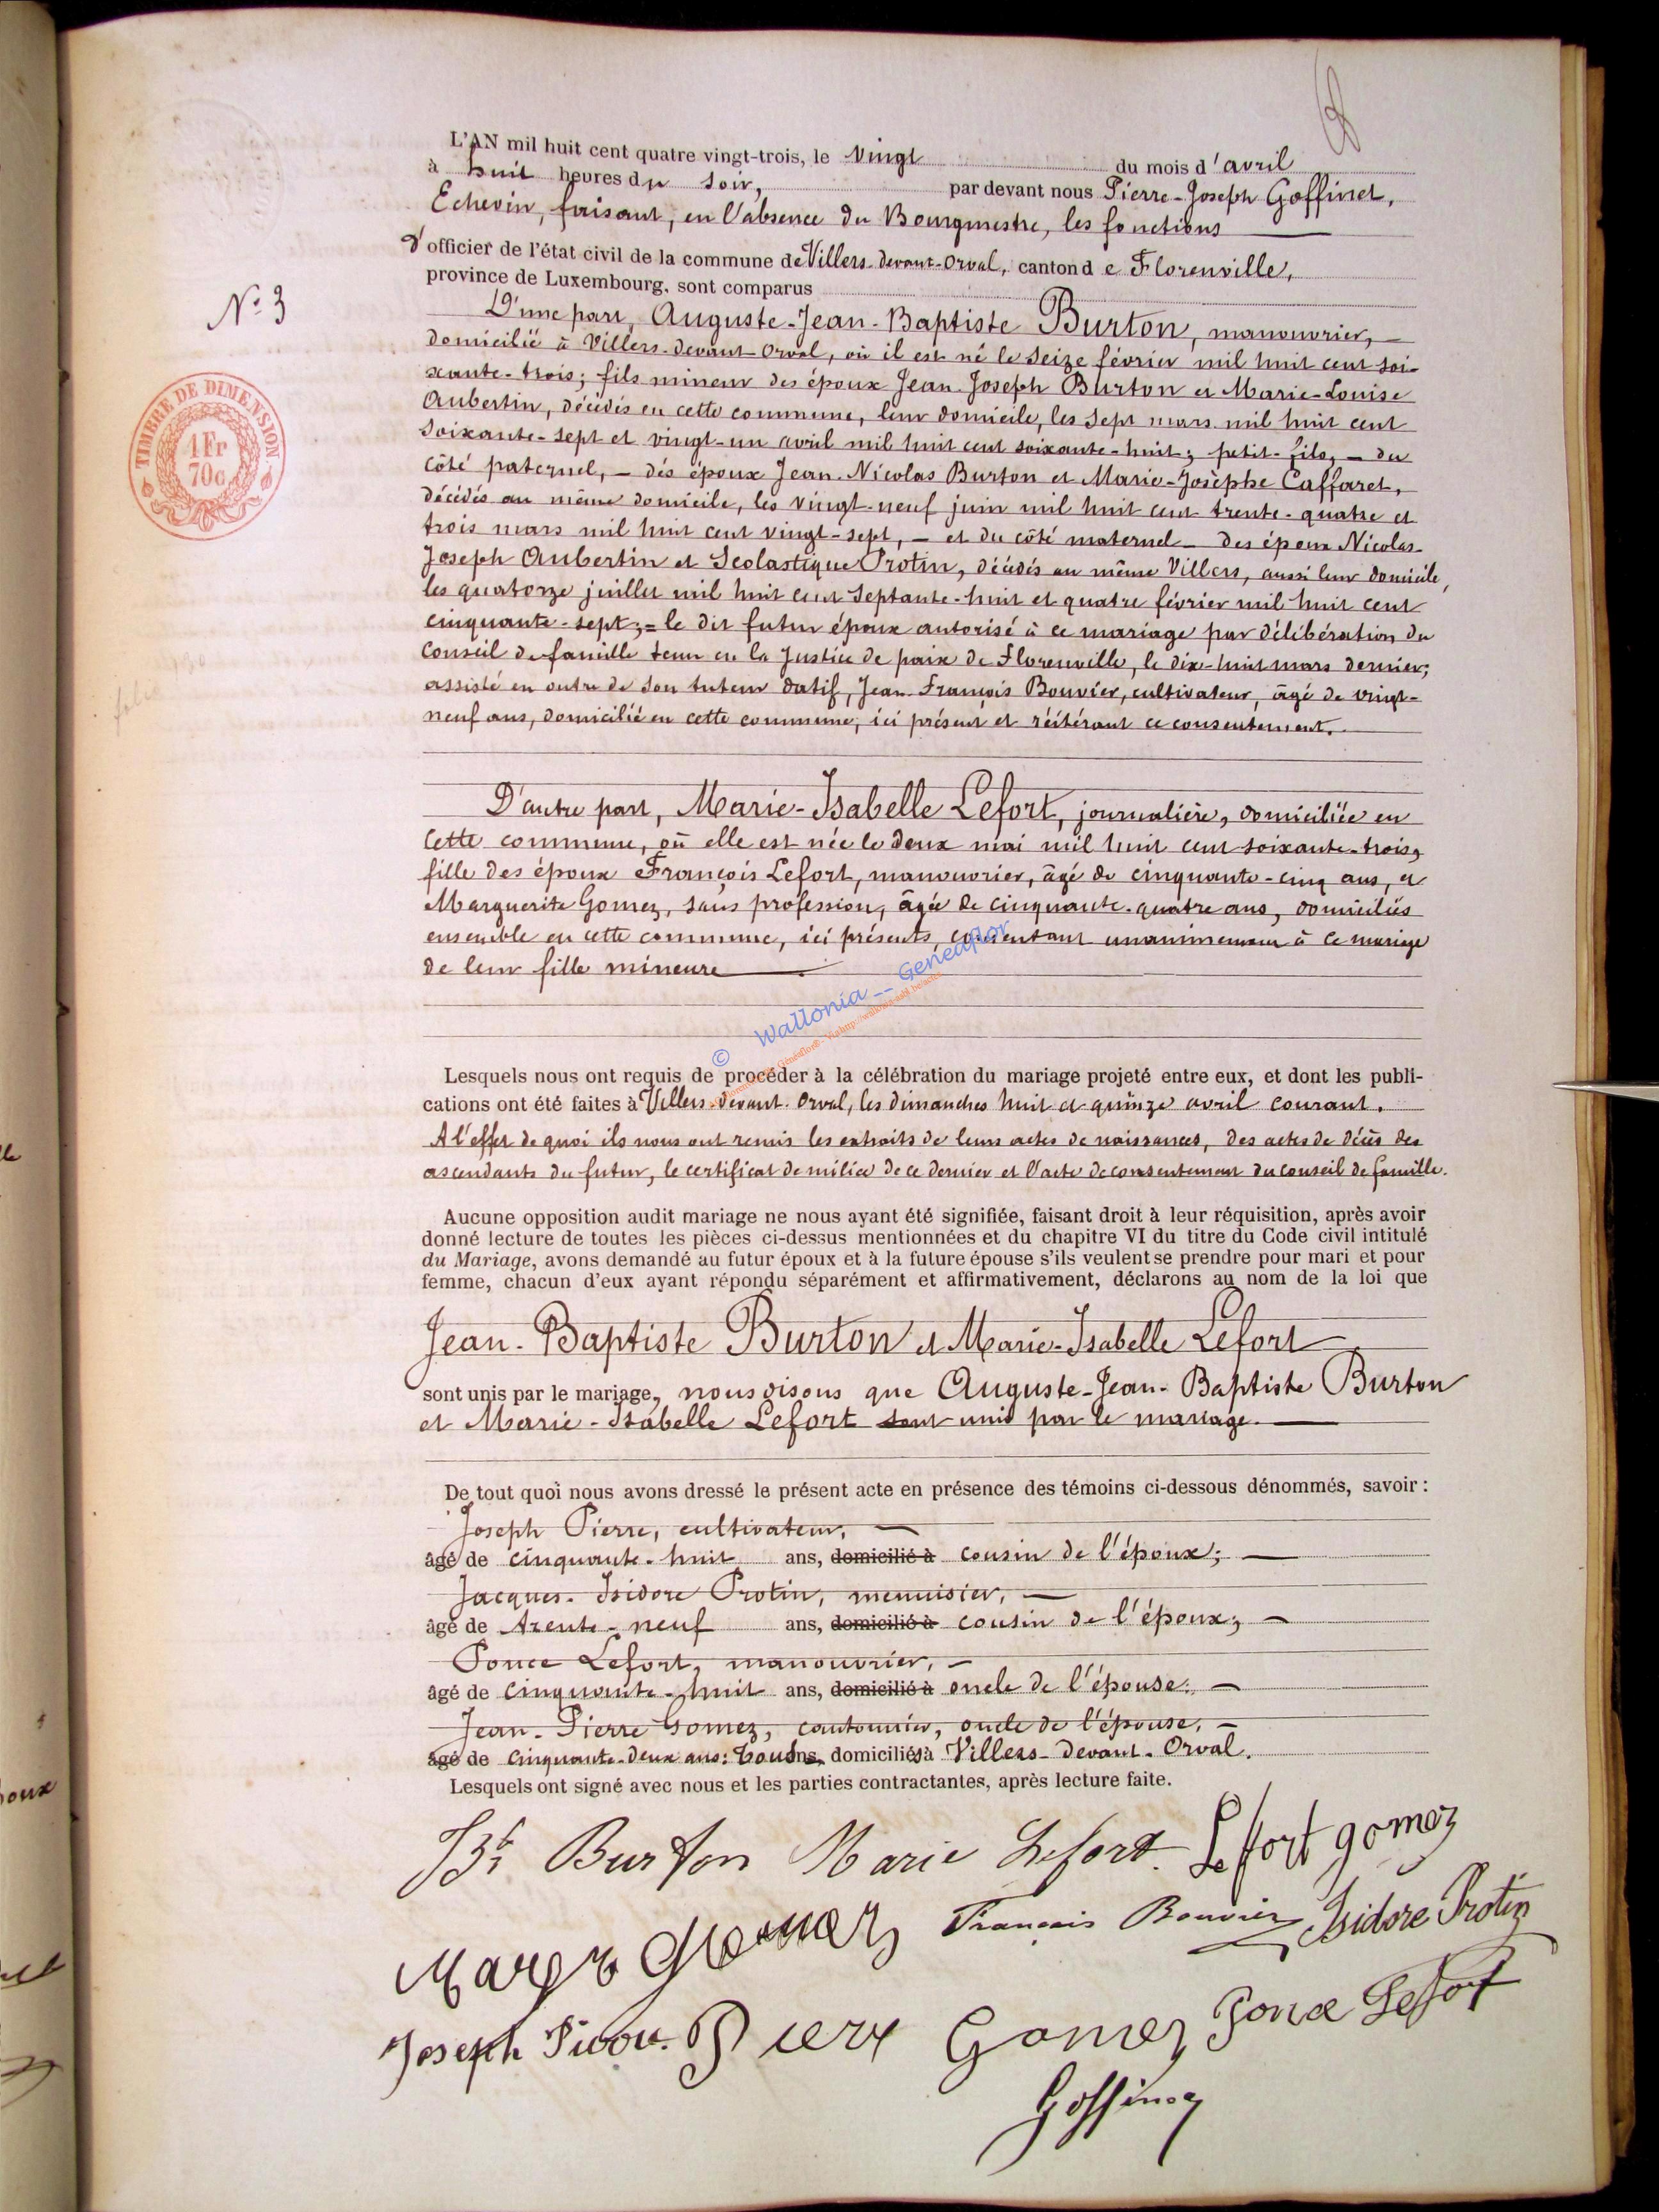 L'AN mil huit cent quatre vingt-trois, le vingt du mois d'avril
à huit heures du soir, par devant nous Pierre-Joseph Goffinet,
Echevin, faisant, en l'absence du Bourgmestre, les fonctions
d'officier de l'état civil de la commune de Villers-devant-Orval, canton de Florenville,
province de Luxembourg, sont comparus
N° 3
D'une part, Auguste-Jean-Baptiste Burton, manouvrier,
domicilié à Villers-devant-Orval, où il est né le seize février mil huit cent soi-
xante-trois; fils mineur des époux Jean-Joseph Burton et Marie-Louise
Aubertin, décédés en cette commune, leur domicile, les sept mars mil huit cent
soixante-sept et vingt-un avril mil huit cent soixante-huit; petit-fils, - du
côté paternel, - des époux Jean-Nicolas Burton et Marie-Josèphe Caffaret,
décédés au même domicile, les vingt-neuf juin mil huit cent trente-quatre et
trois mars mil huit cent vingt-sept, - et du côté maternel - des époux Nicolas-
Joseph Aubertin et Scolastique Protin, décédés au même Villers, aussi leur domicile,
les quatorze juillet mil huit cent septante-huit et quatre février mil huit cent
cinquante-sept; = le dit futur époux autorisé à ce mariage par délibération du
Conseil de famille tenu en la Justice de paix de Florenville, le dix-huit mars dernier;
assisté en outre de son tuteur datif, Jean-François Bouvier, cultivateur, âgé de vingt-
neuf ans, domicilié en cette commune, ici présent et réitérant ce consentement.
TIMBRE DE DIMENSION
1 Fr
70c
D'autre part, Marie-Isabelle Lefort, journalière, domiciliée en
cette commune, où elle est née le deux mai mil huit cent soixante-trois,
fille des époux François Lefort, manouvrier, âgé de cinquante-cinq ans, et
Marguerite Gomez, sans profession, âgée de cinquante-quatre ans, domiciliés
ensemble en cette commune, ici présents, consentant unanimement à ce mariage
de leur fille mineure.
© Wallonia -- Geneaflor
Lesquels nous ont requis de procéder à la célébration du mariage projeté entre eux, et dont les publi-
cations ont été faites à Villers-devant-Orval, les dimanches huit et quinze avril courant.
A l'effet de quoi ils nous ont remis les extraits de leurs actes de naissances, des actes de décès des
ascendants du futur, le certificat de milice de ce dernier et l'acte de consentement du conseil de famille.
Aucune opposition audit mariage ne nous ayant été signifiée, faisant droit à leur réquisition, après avoir
donné lecture de toutes les pièces ci-dessus mentionnées et du chapitre VI du titre du Code civil intitulé
du Mariage, avons demandé au futur époux et à la future épouse s'ils veulent se prendre pour mari et pour
femme, chacun d'eux ayant répondu séparément et affirmativement, déclarons au nom de la loi que
Jean-Baptiste Burton et Marie-Isabelle Lefort
sont unis par le mariage, nous disons que Auguste-Jean-Baptiste Burton
et Marie-Isabelle Lefort sont unis par le mariage.
De tout quoi nous avons dressé le présent acte en présence des témoins ci-dessous dénommés, savoir :
Joseph Pierre, cultivateur,
âgé de cinquante-huit ans, domicilié à cousin de l'époux;
Jacques-Isidore Protin, menuisier,
âgé de trente-neuf ans, domicilié à cousin de l'époux;
Ponce Lefort, manouvrier,
âgé de cinquante-huit ans, domicilié à oncle de l'épouse;
Jean-Pierre Gomez, cantonnier, oncle de l'épouse,
âgé de cinquante-deux ans: tous domiciliés à Villers-devant-Orval.
Lesquels ont signé avec nous et les parties contractantes, après lecture faite.
Bte Burton Marie Lefort. Lefort gomez
Margr Gomez François Bouvier Isidore Protin
Joseph Pierre Gomez Ponce Lefort
Goffinet